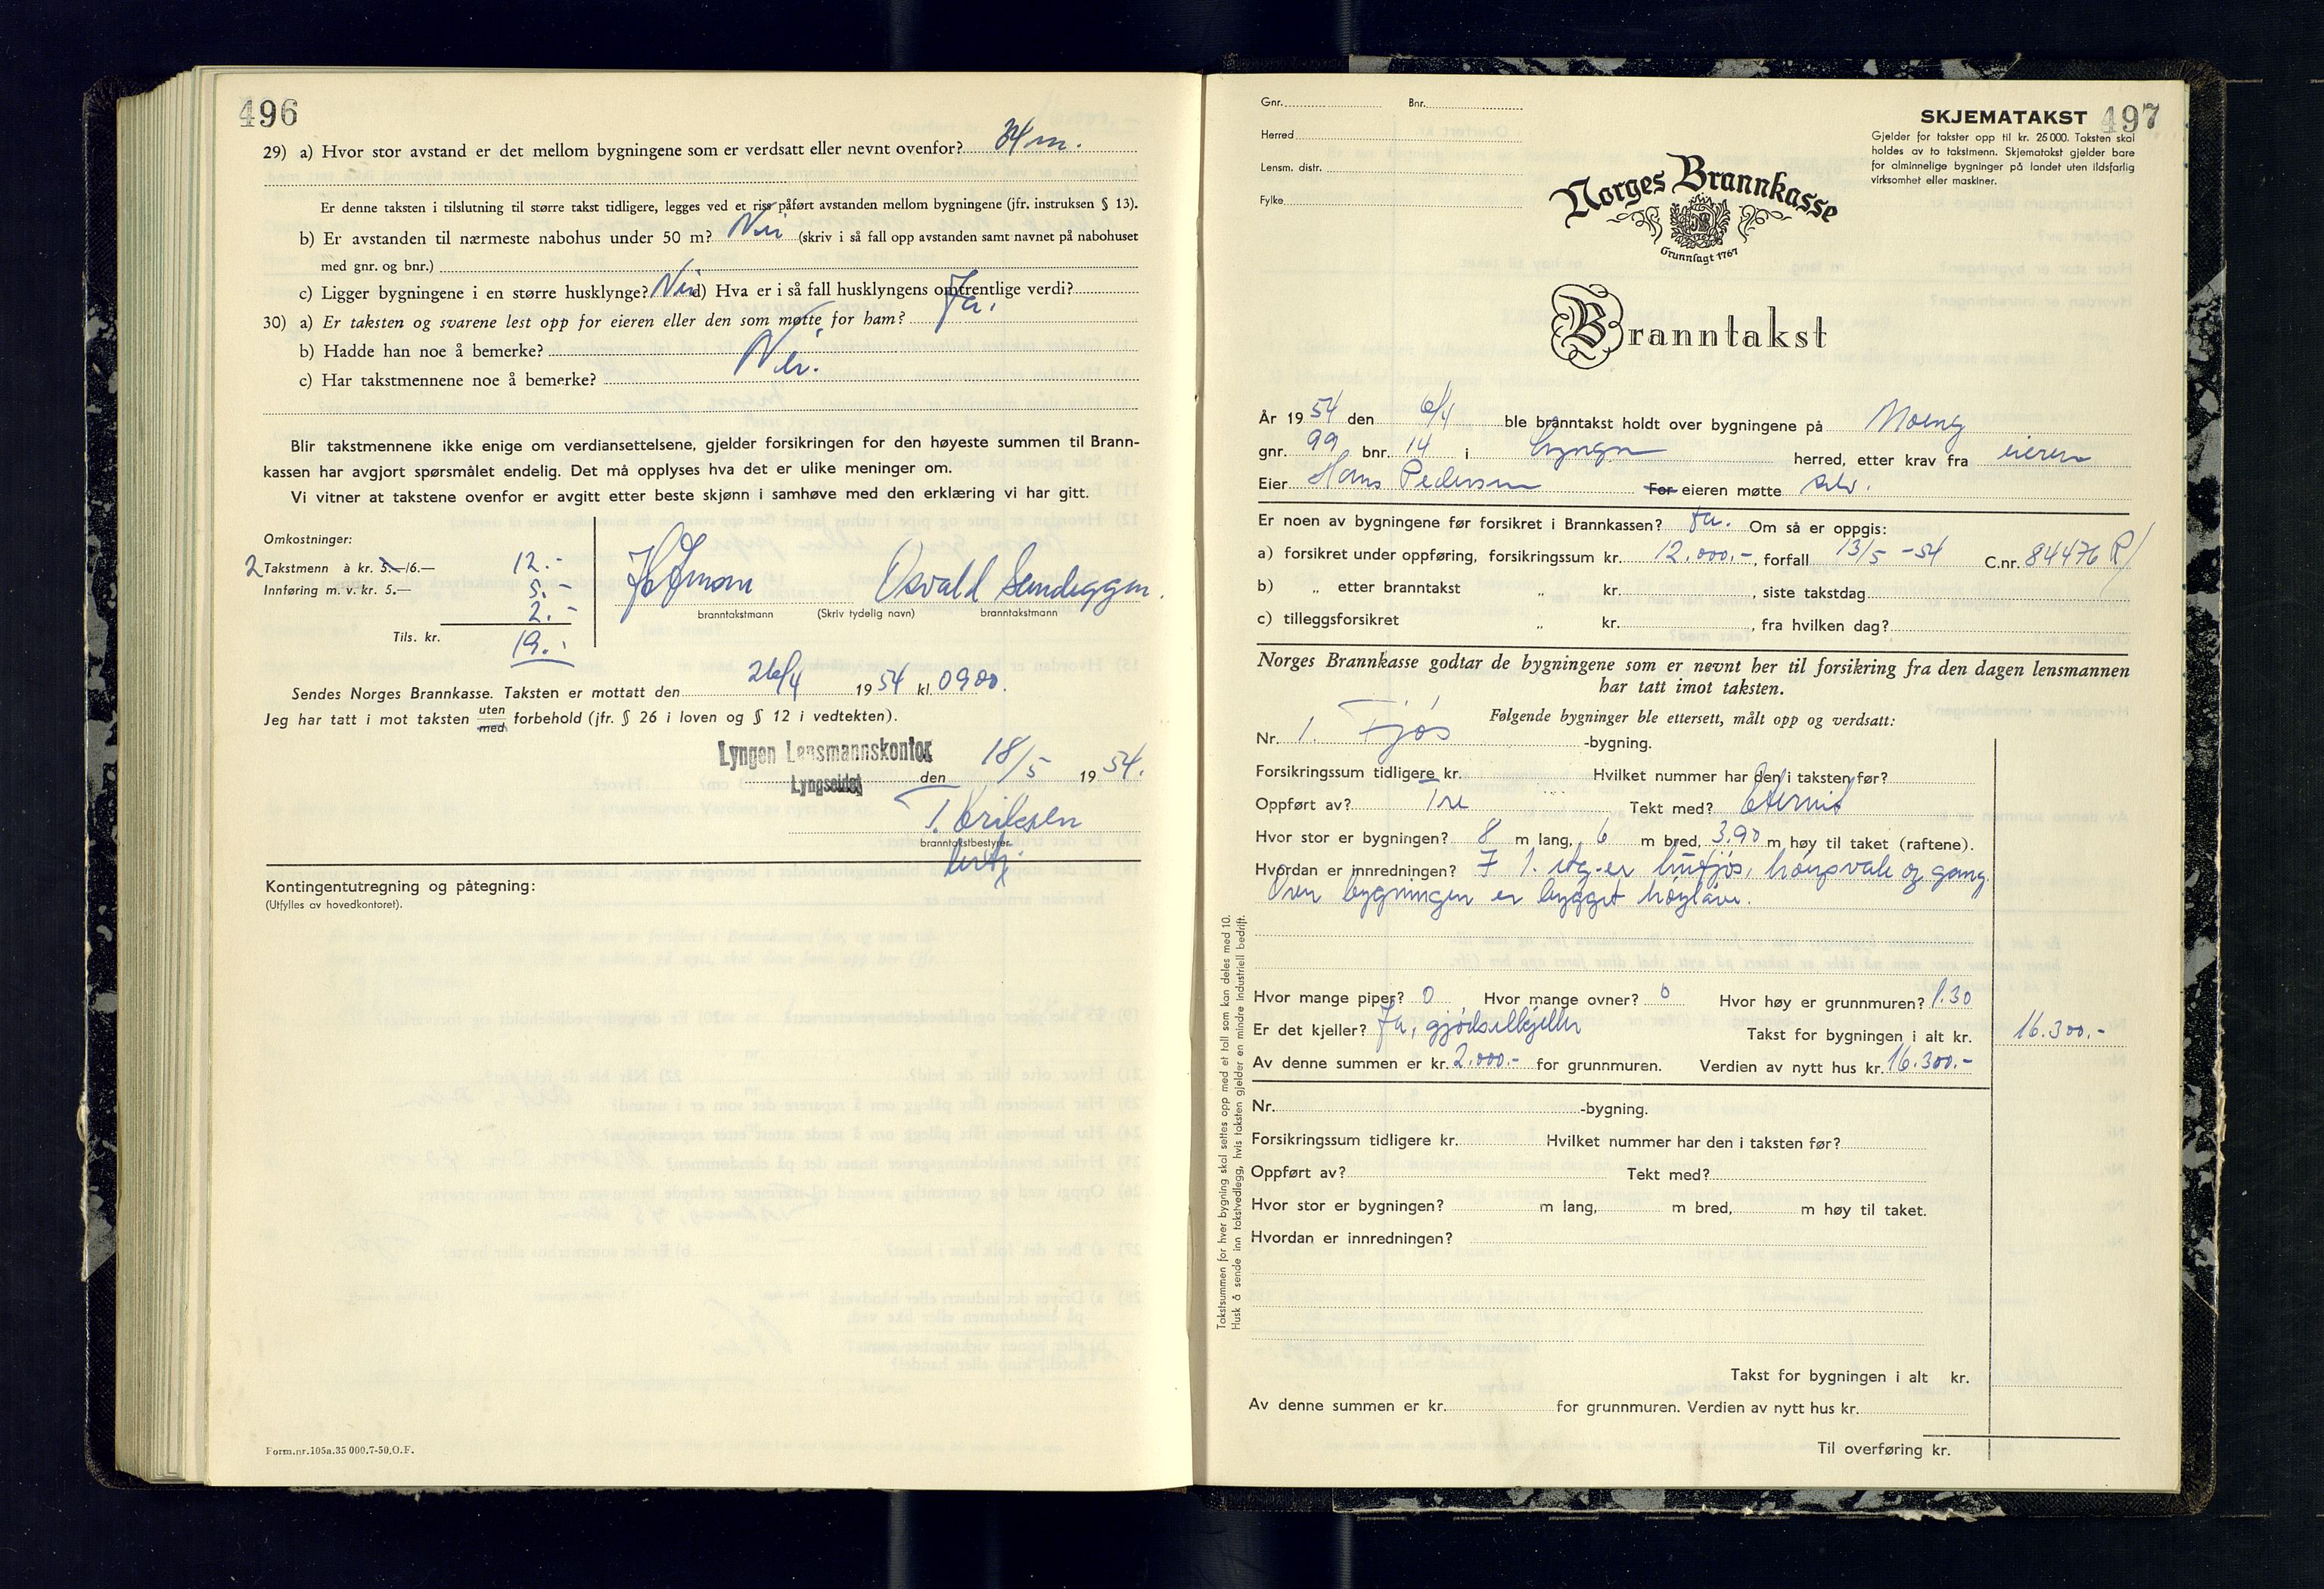 496
29) a) Hvor stor avstand er det mellom bygningene som er verdsatt eller nevnt ovenfor? 34 m.
Er denne taksten i tilslutning til større takst tidligere, legges ved et riss påført avstanden mellom bygningene (jfr. instruksen § 13).
b) Er avstanden til nærmeste nabohus under 50 m? Nei (skriv i så fall opp avstanden samt navnet på nabohuset
med gnr. og bnr.)
c) Ligger bygningene i en større husklynge? Nei d) Hva er i så fall husklyngens omtrentlige verdi?
30) a) Er taksten og svarene lest opp for eieren eller den som møtte for ham? Ja.
b) Hadde han noe å bemerke?
c) Har takstmennene noe å bemerke? Nei.
Blir takstmennene ikke enige om verdiansettelsene, gjelder forsikringen for den høyeste summen til Brann-
kassen har avgjort spørsmålet endelig. Det må opplyses hva det er ulike meninger om.
Vi vitner at takstene ovenfor er avgitt etter beste skjønn i samhøve med den erklæring vi har gitt.
Omkostninger:
2 Takstmenn à kr. 5.—/6.— 12.-
Innføring m. v. kr. 5.— 5.-
2.-
Tils. kr. 19.-
Osvald Sundeggen.
branntakstmann (Skriv tydelig navn) branntakstmann
Sendes Norges Brannkasse. Taksten er mottatt den 26/4 1954 kl. 0900.
Jeg har tatt i mot taksten uten med forbehold (jfr. § 26 i loven og § 12 i vedtekten).
Lyngen Lensmannskontor
Lyngseidet den 18/5 1954.
T. Eriksen
branntakstbestyrer
betj.
Kontingentutregning og påtegning:
(Utfylles av hovedkontoret).
Form.nr.105a.35 000.7-50.O.F.
497
Gnr. Bnr.
Herred
Lensm. distr.
Fylke
SKJEMATAKST
Gjelder for takster opp til kr. 25 000. Taksten skal
holdes av to takstmenn. Skjematakst gjelder bare
for alminnelige bygninger på landet uten ildsfarlig
virksomhet eller maskiner.
Norges Brannkasse
Grunnlagt 1767
Branntakst
År 1954 den 6/4 ble branntakst holdt over bygningene på Moeng
gnr. 99 bnr. 14 i Lyngen herred, etter krav fra eieren
Eier Hans Pedersen For eieren møtte selv.
Er noen av bygningene før forsikret i Brannkassen? Ja. Om så er oppgis:
a) forsikret under oppføring, forsikringssum kr. 12.000.-, forfall 13/5 -54 C.nr. 84476 R/
b) „ etter branntakst „ kr. , siste takstdag
c) tilleggsforsikret „ kr. , fra hvilken dag?
Norges Brannkasse godtar de bygningene som er nevnt her til forsikring fra den dagen lensmannen
har tatt imot taksten.
Følgende bygninger ble ettersett, målt opp og verdsatt:
Nr. 1. Fjøs -bygning.
Forsikringssum tidligere kr. Hvilket nummer har den i taksten før?
Oppført av? Tre Tekt med? Eternit
Hvor stor er bygningen? 8 m lang, 6 m bred, 3,90 m høy til taket (raftene).
Hvordan er innredningen? I 1. etg. er bufjøs, og gang.
Over bygningen er bygget høylåve.
Hvor mange piper? 0 Hvor mange ovner? 0 Hvor høy er grunnmuren? 1.30
Er det kjeller? Ja, gjødselkjeller Takst for bygningen i alt kr. 16.300.-
Av denne summen er kr. 2.000.- for grunnmuren. Verdien av nytt hus kr. 16.300.-
Nr. -bygning.
Forsikringssum tidligere kr. Hvilket nummer har den i taksten før?
Oppført av? Tekt med?
Hvor stor er bygningen? m lang, m bred, m høy til taket.
Hvordan er innredningen?
Takst for bygningen i alt kr.
Av denne summen er kr. for grunnmuren. Verdien av nytt hus kr.
Til overføring kr.
Takstsummen for hver bygning skal settes opp med et tall som kan deles med 10.
Husk å sende inn takstvedlegg, hvis taksten gjelder en mindre industriell bedrift.